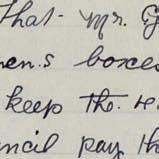 That. Mr. G
men.s boxes
keep the
ncil pay th